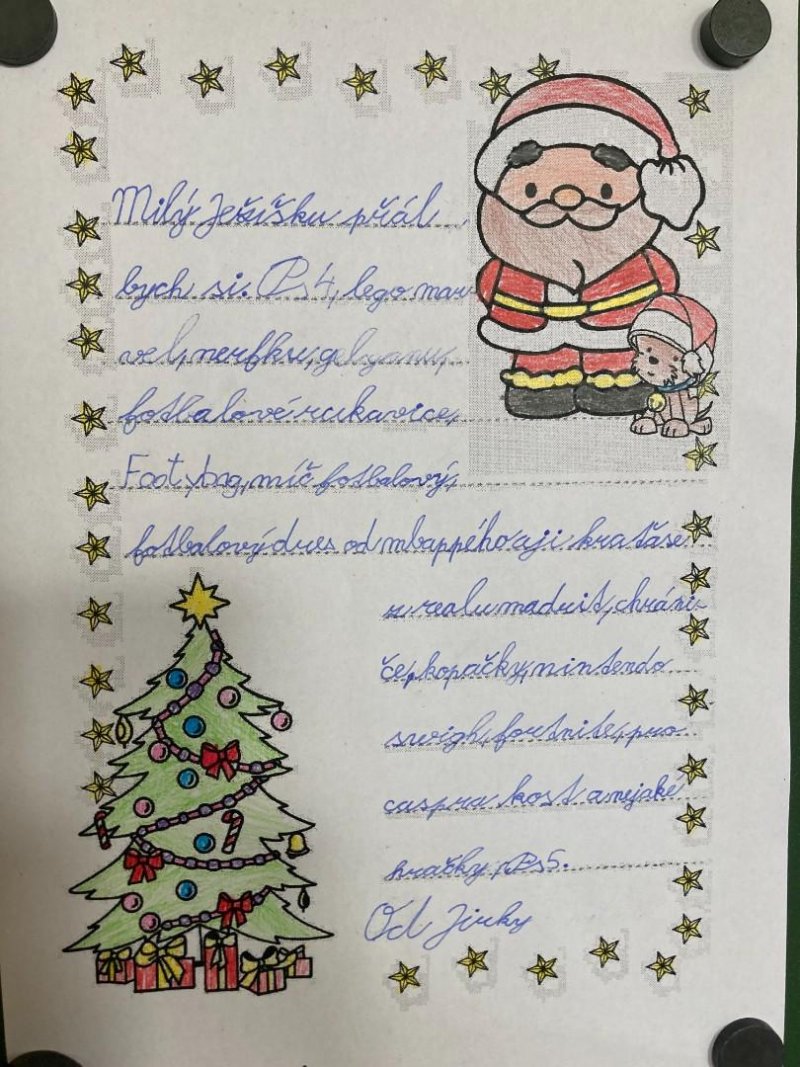 Milý Ježíšku přál
bych si. Ps4, lego mar
vel, nerfku,
fotbalové rukavice,
Foot, bag, míč fotbalový,
fotbalový dres od mbappého aji kraťase
z realu madrit, chráni-
če, kopačky, nintendo
swigh, fortnite, pro
caspra kost a nejaké
hračky, Ps5.
Od Jirky